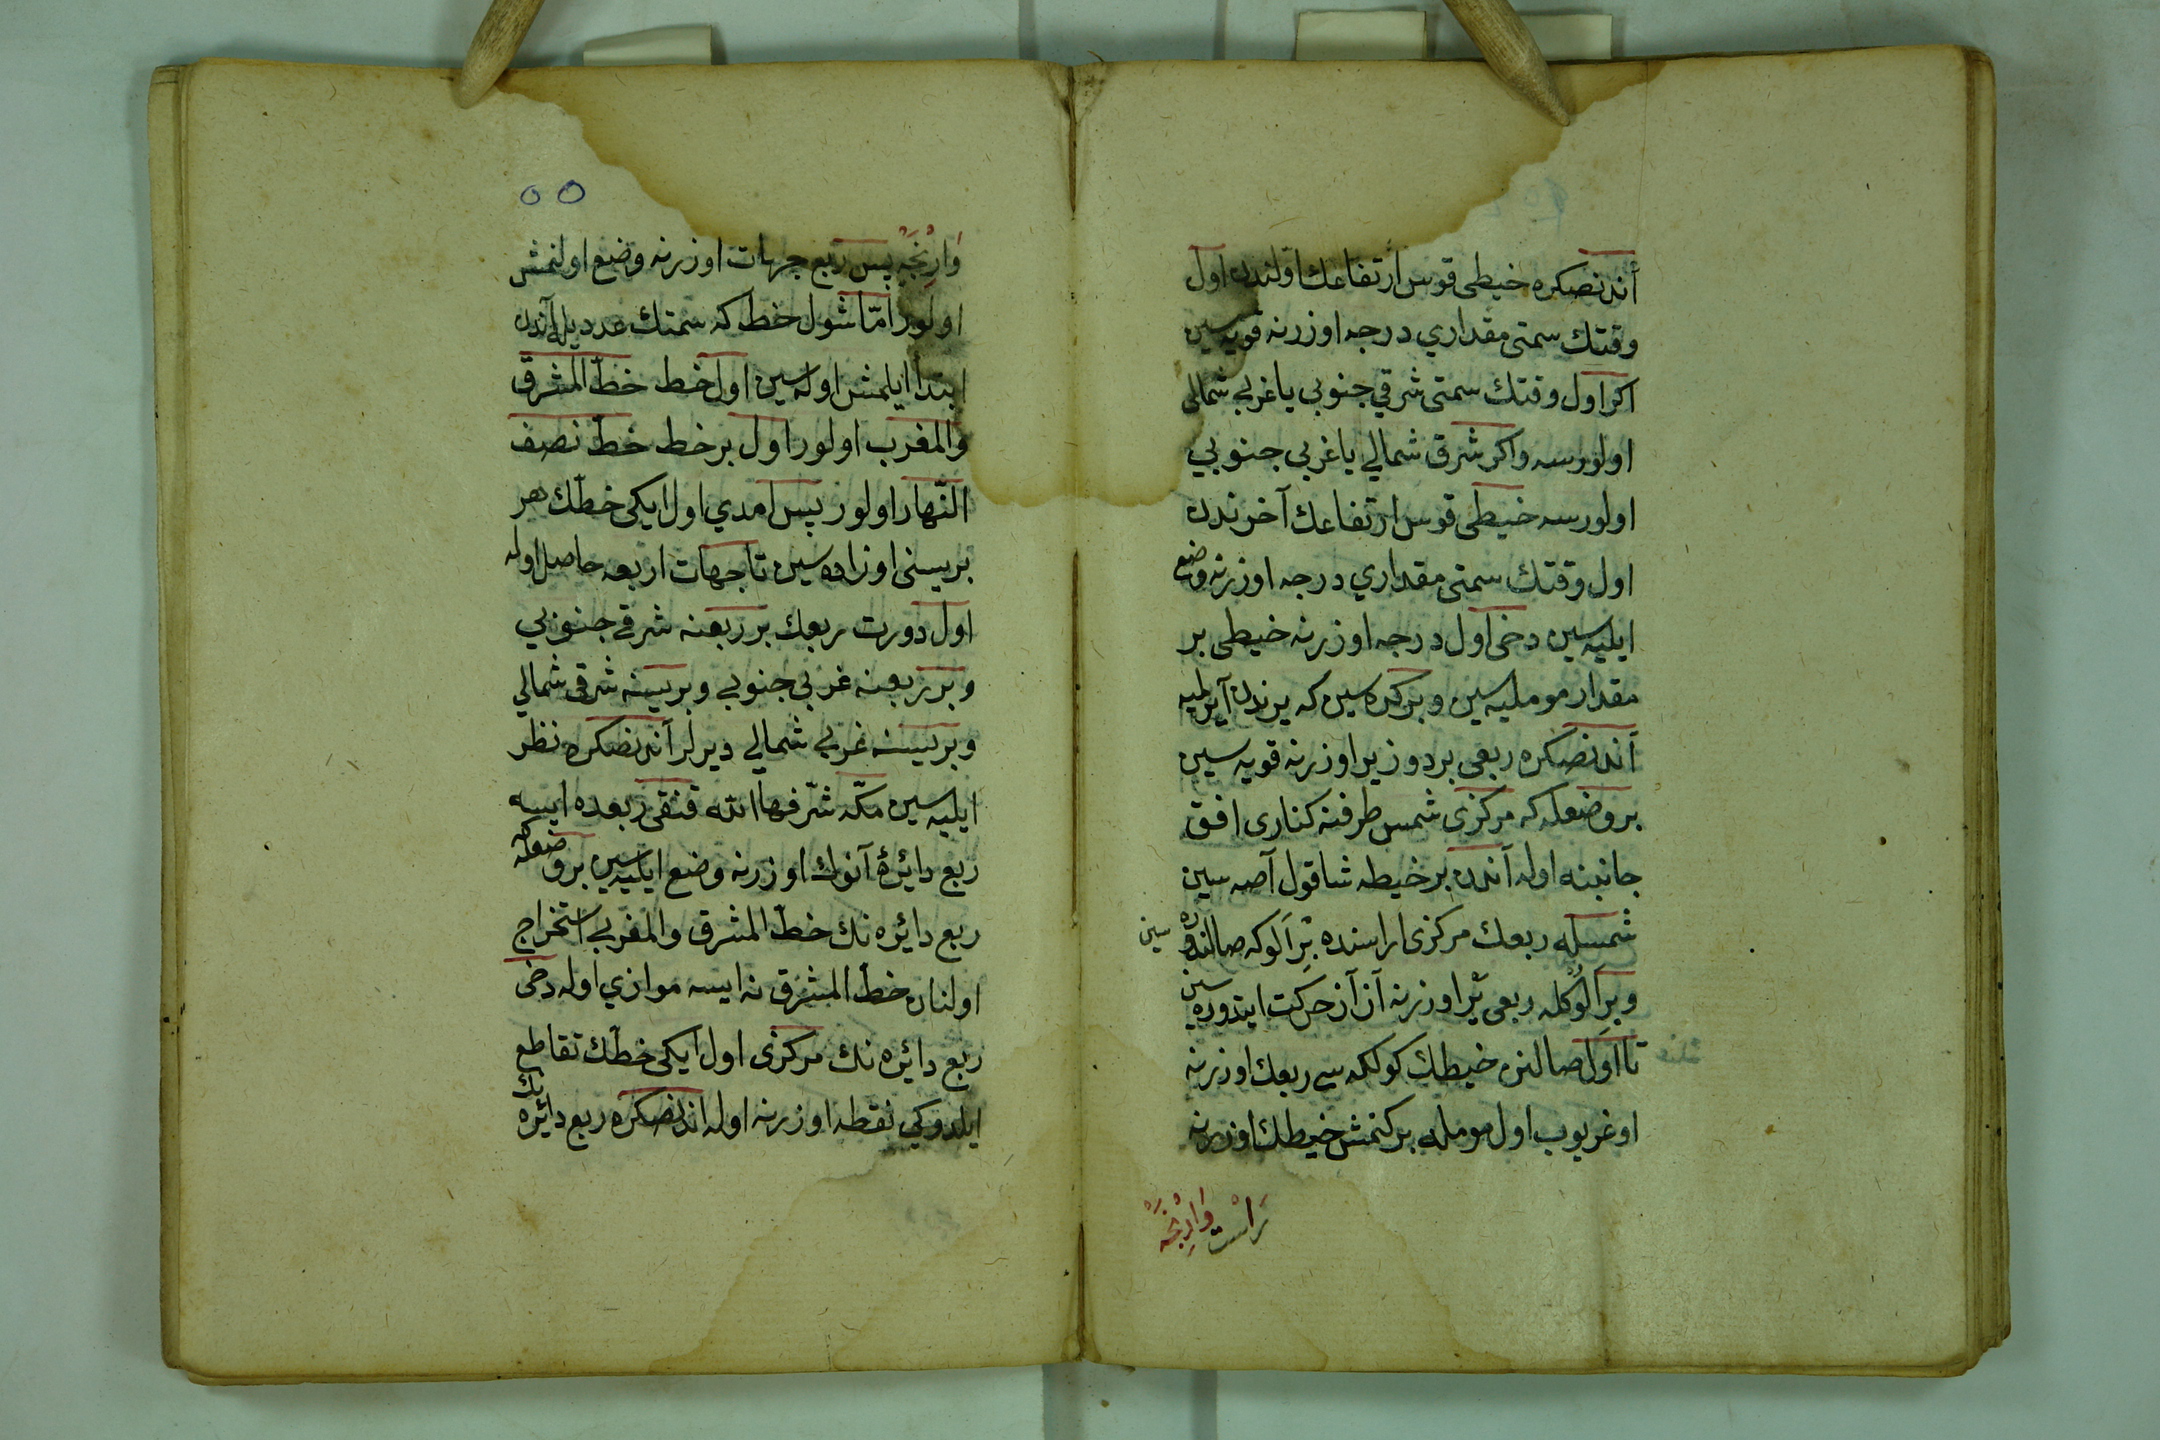 أندنصكره خيطى قوس ارتفاعك اولندن اول
وقتك سمتى مقداري درجه اوزرنه قويه سين
اكر اول وقتك سمتى شرقي جنوبي يا غربي شمالى
اولورسه واكر شرق شمالي يا غربي جنوبي
اولورسه خيطى قوس ارتفاعك آخرندن
اول وقتك سمتى مقداري درجه اوزرنه وضع
ايليه سين دخى اول درجه اوزرنه خيطى بر
مقدار موملیه سين و برکده سين كه يرندن آيرلميه
أندنصكره ربعى بر دوز ير اوزرنه قويه سين
بر وضعله كه مركزى شمس طرفنه كنارى افق
جانبنه اوله آندن بر خيطه شاقول آصه سين
شمسله ربعك مركزى اراسنده بر الوكه صالندره
سين
وبر الوكله ربعى ير اوزرنه آز آز حركت ايتدوره سين
تا اول صالنن خيطك كولكه سي ربعك اوزرنه
اوغريوب اول مومله بركنمش خيطك اوزرنه
راست وارنجه
٥٥
وارنجه پس ربع جهات اوزرنه وضع اولنمش
اولور امّا شول خط كه سمتك عدديله آندن
ابتدا ايلمش اوله سين اول خط خطّ المشرق
والمغرب اولور اول بر خط خطّ نصف
النّهار اولور پس امدي اول ايكى خطّك هر
بريسنى اوزاده سين تا جهات اربعه حاصل اوله
اول دورت ربعك بر ربعنه شرقي جنوبي
وبر ربعنه غربي جنوبي وبريسنه شرقى شمالي
وبريسنه غربي شمالي ديرلر آندنصكره نظر
ايليه سين مكّه شرّفها الله قنقى ربعده ايسه
ربع دائرۀ آنوك اوزرنه وضع ايليه سين بر وضعله كه
ربع دائره نك خطّ المشرق والمغربي استخراج
اولنان خطّ المشرق نه ايسه موازي اوله دخى
ربع دائره نك مركزى اول ايكى خطّك تقاطع
ايلدوكي نقطه اوزرنه اوله اندنصكره ربع دائره نك